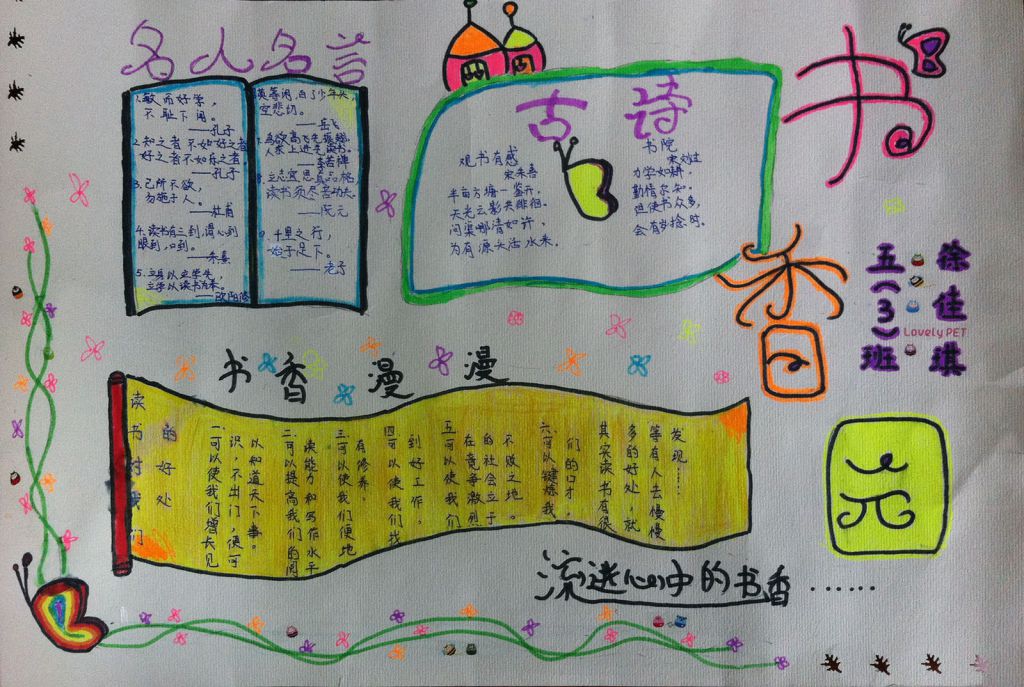 名人名言
1.敏而好学，
不耻下问。
——孔子
2.知之者不如好之者
好之者不如乐之者。
——孔子
3.己所不欲，
勿施于人。
4.读书有三到,谓心到
眼到,口到。
——朱熹
5.立身以立学先，
立学以读书为本。
——欧阳修
莫等闲,白了少年头，
空悲切。
——岳飞
——李若禅
读书须尽苦功夫。
——阮元
9.千里之行，
始于足下。
——老子
古诗
观书有感
宋朱熹
半亩方塘一鉴开，
天光云影共徘徊。
问渠哪清如许，
为有源头活水来。
书院
宋刘过
力学如耕，
勤惰尔知。
但使书众多，
会有岁稔时。
书
香
园
徐佳琪
五(3)班
Lovely PET
书香漫漫
读书对我们
的好处
一可以使我们增长见
识，不出门，便可
以知道天下事。
二.可以提高我们的阅
读能力和写作水平
三可以使我们便地
有修养，
四可以使我们找
到好工作。
五可以使我们
在竞争激烈
的社会立于
不败之地。
六.可以键炼我
们的口才，
其实读书有很
多的好处，就
等有人去慢慢
发现……
流进心中的书香……